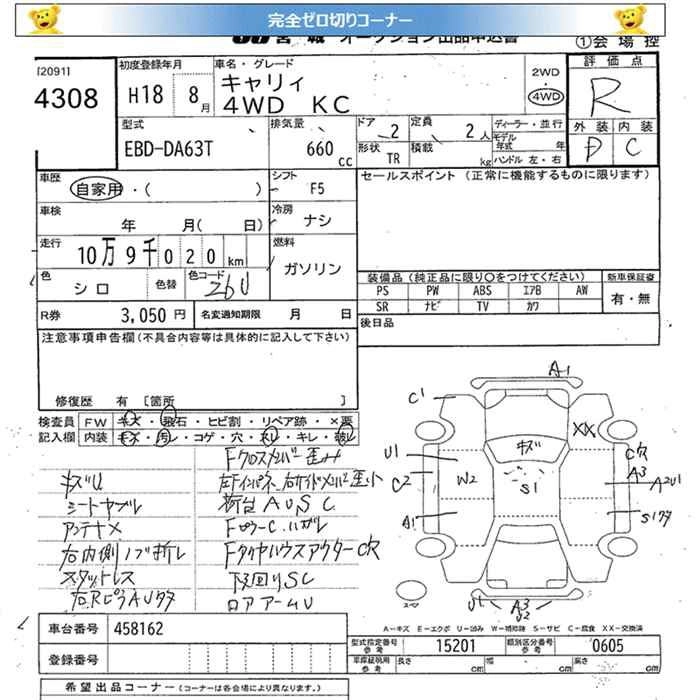 完全ゼロ切りコーナー
オークション出品申込書
①会場控
[2091]
4308
初度登録年月
H18 8月
車名・グレード
キャリィ
4WD KC
2WD
4WD
評価点
R
外装 内装
D C
型式
EBD-DA63T
排気量
660 cc
ドア 2
定員 2人
形状 TR
積載 kg
ディーラー・並行
モデル年式 年
ハンドル 左・右
車歴
自家用・( )
シフト F5
セールスポイント (正常に機能するものに限ります)
車検
年 月( 日)
冷房
ナシ
走行
10万9千020km
燃料
ガソリン
色
シロ
色替
色コード
26U
装備品(純正品に限り○をつけてください)
新車保証書
PS PW ABS エアB AW
SR ナビ TV カワ
有・無
R券 3,050円
名変通知期限 月 日
後日品
注意事項申告欄(不具合内容等は具体的に記入して下さい)
修復歴 有 [箇所 ]
検査員記入欄
FW キズ・飛石・ヒビ割・リペア跡・×要
内装 キズ・汚レ・コゲ・穴・ヌレ・キレ・破レ
キズU
シートヤブレ
アンテナ×
右内側ノブ折レ
スタットレス
右Rピラ AUタタ
Fクロスメンバー歪ミ
荷台AUSC
Fタイヤハウスアウター C穴
下回りSC
ロアアームU
A1
C1
XX
キズ
S1
U1
W2
C2
A1
C穴
A3
A2U1
S1タタ
U1
A3
U2
A-キズ E-エクボ U-凹み W-補修跡 S-サビ C-腐食 XX-交換済
車台番号 458162
登録番号
型式指定番号 参考 15201
類別区分番号 参考 0605
車庫証明用 参考 長さ cm 幅 cm 高さ cm
希望出品コーナー(コーナーは各会場により異なります。)